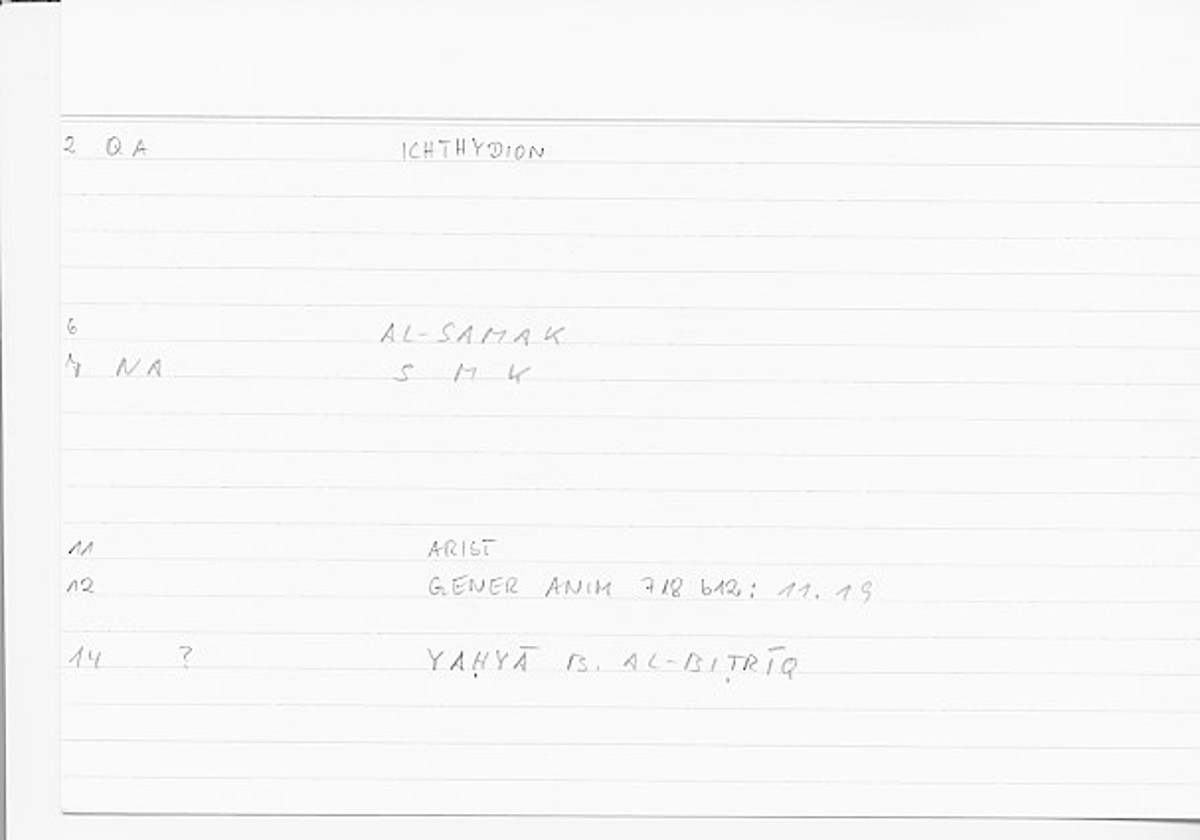 2 QA ICHTHYDION
6 AL-SAMAK
7 NA S M K
11 ARIST
12 GENER ANIM 718 b12: 11.19
14 ? YAḤYĀ B. AL-BIṬRĪQ